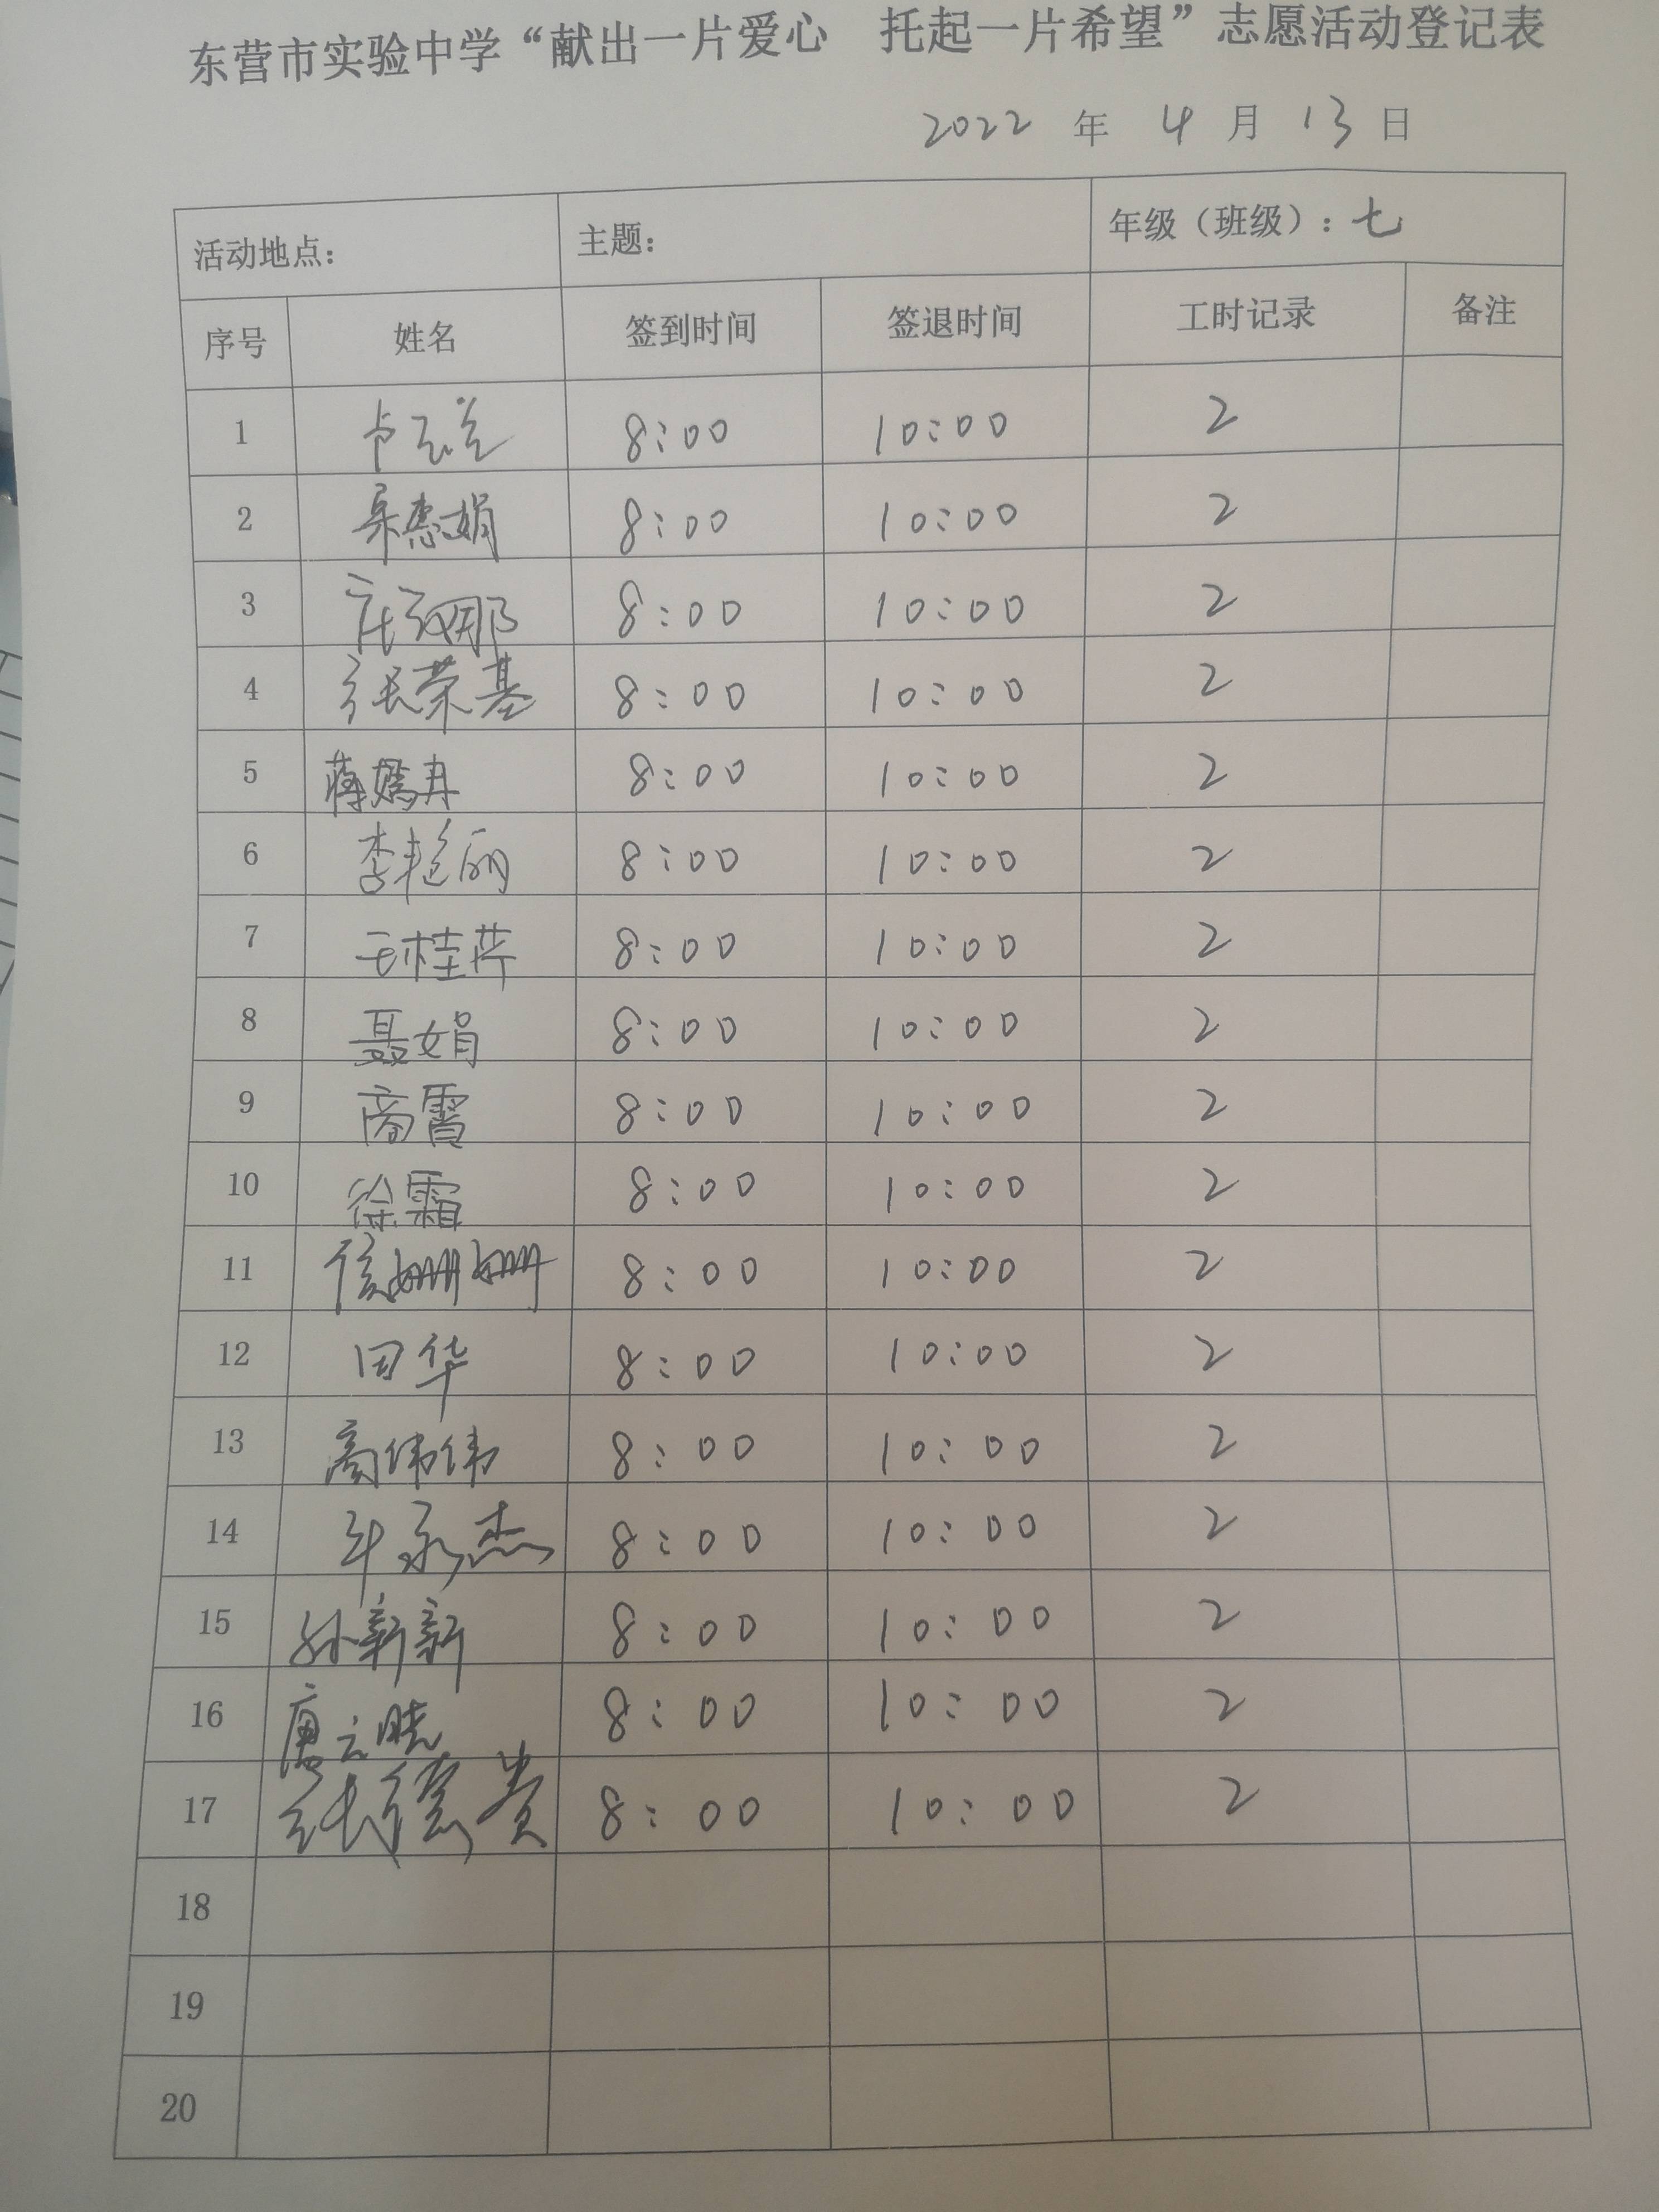 东营市实验中学“献出一片爱心 托起一片希望”志愿活动登记表
2022 年 4 月 13 日
活动地点： 主题： 年级（班级）：七
序号 姓名 签到时间 签退时间 工时记录 备注
1 8:00 10:00 2
2 惠娟 8:00 10:00 2
3 8:00 10:00 2
4 张荣基 8:00 10:00 2
5 蒋嫣冉 8:00 10:00 2
6 李艳丽 8:00 10:00 2
7 王桂芹 8:00 10:00 2
8 聂娟 8:00 10:00 2
9 商霄 8:00 10:00 2
10 徐霜 8:00 10:00 2
11 侯姗姗 8:00 10:00 2
12 田华 8:00 10:00 2
13 高伟伟 8:00 10:00 2
14 永杰 8:00 10:00 2
15 孙新新 8:00 10:00 2
16 唐云晓 8:00 10:00 2
17 张德贵 8:00 10:00 2
18
19
20